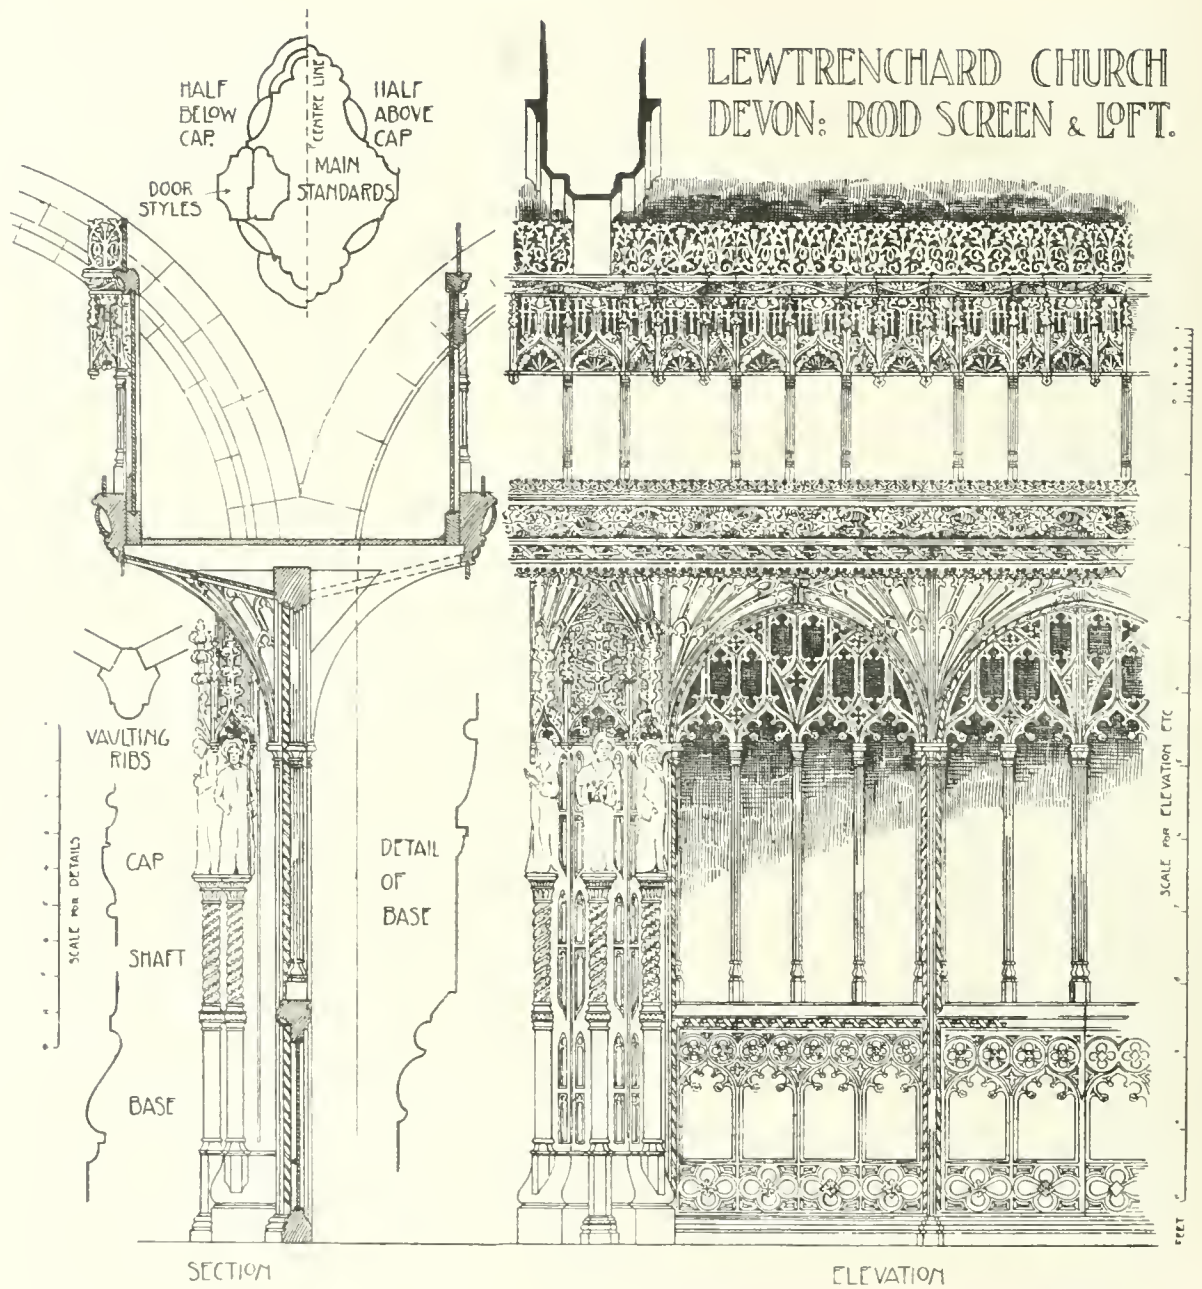 LEWTRENCHARD CHURCH
DEVON: ROOD SCREEN & LOFT.
HALF
BELOW
CAP.
CENTRE LINE
HALF
ABOVE
CAP
DOOR
STYLES
MAIN
STANDARDS
VAULTING
RIBS
CAP
SHAFT
BASE
SCALE FOR DETAILS
DETAIL
OF
BASE
SCALE FOR ELEVATION ETC
FEET
SECTION
ELEVATION